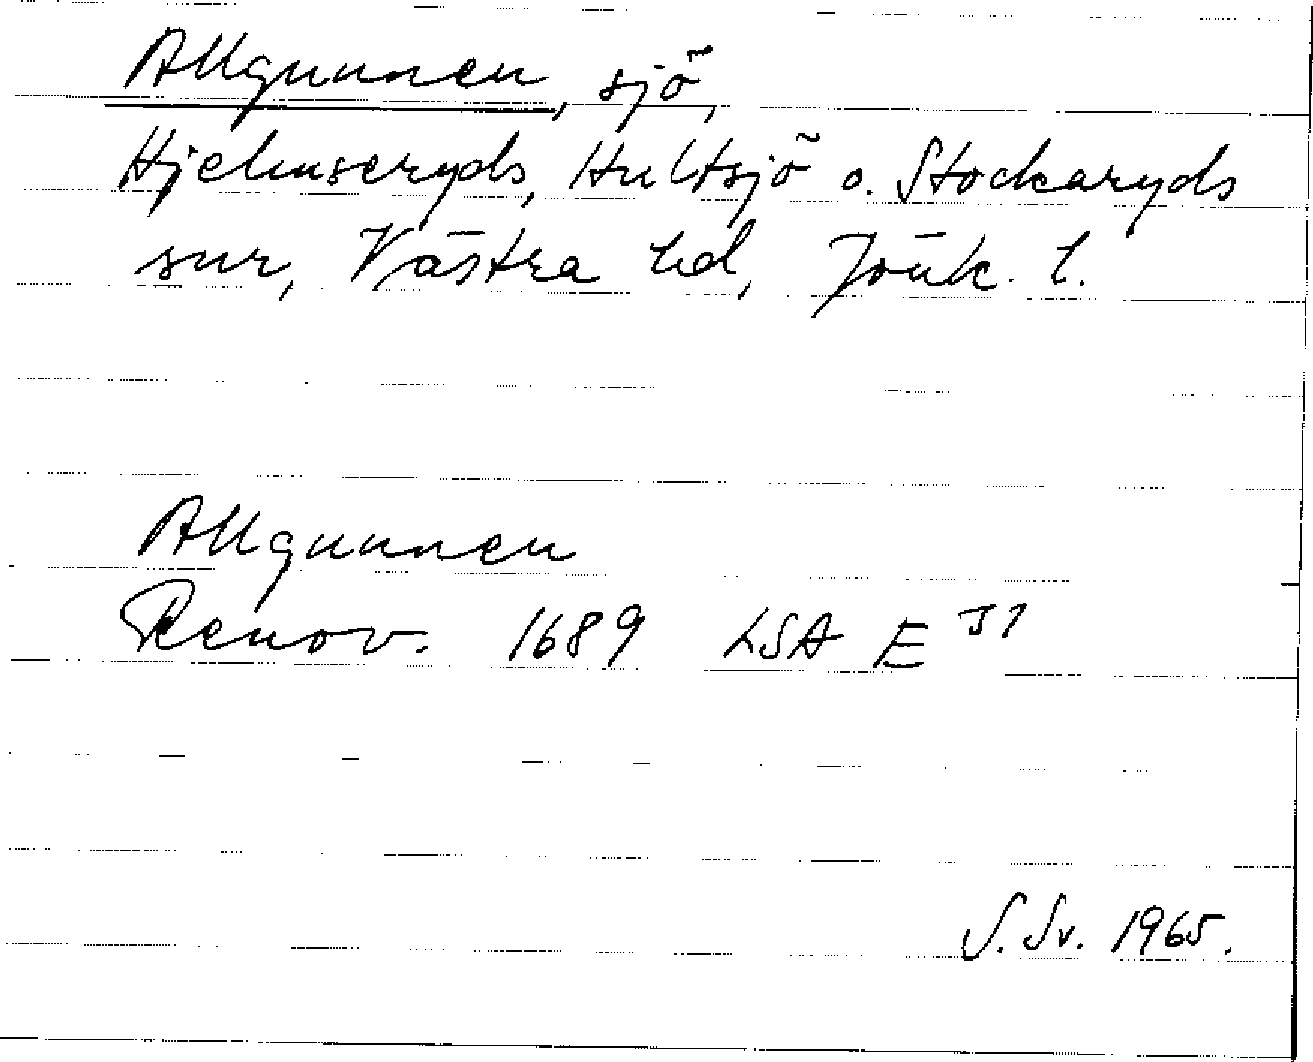 Allgunnen, sjö,
Hjelmseryds, Hultsjö o. Stockaryds
snr, Västra hd, Jönk. l.
Allgunnen
Renov. 1689 LSA E J1
S. Sv. 1965.